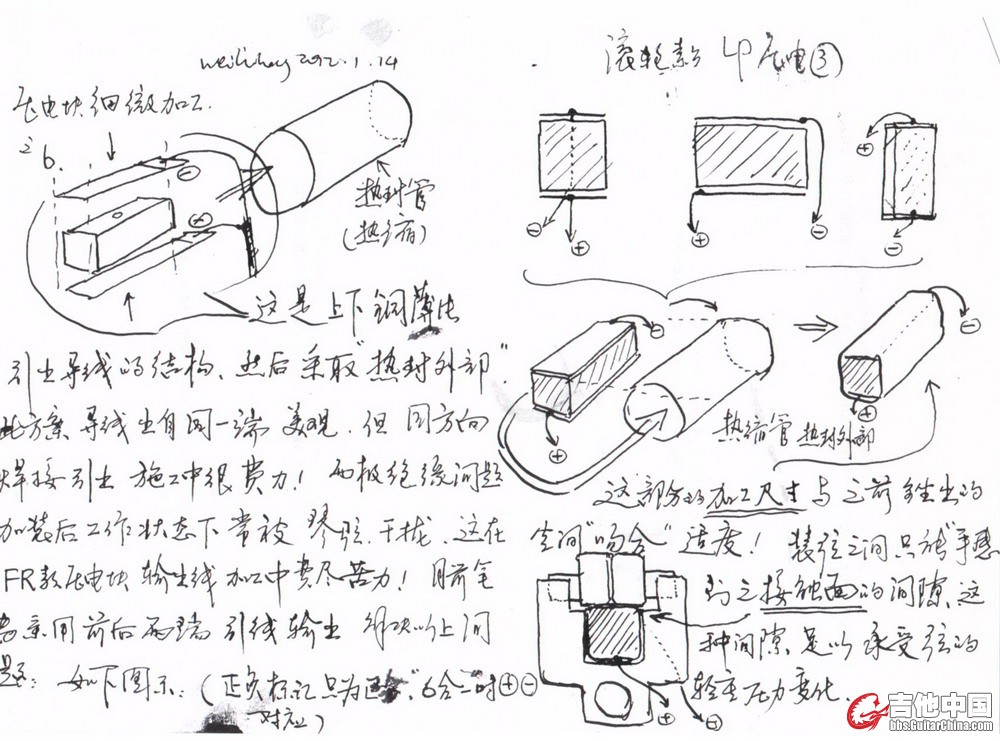 2012.1.14
滚轮款 LP 压电③
压电块细微加工.
26.
⊖
⊕
热封管
(热缩)
这是上下铜薄片
引出导线的结构、然后采取"热封外部".
此方案导线出自同一端美观.但同方向
焊接引出施工中很费力！两极绝缘问题
加装后工作状态下常被琴弦干扰.这在
FR款压电块输出线加工中费尽苦力！目前笔
者采用前后两端引线输出解决以上问
题：如下图示：(正负标记只为 "6合一时⊕⊖
一对应)
⊖ ⊕
⊕ ⊖
⊕ ⊖
⊖ ⊕
⊖ ⊕
热缩管 热封外部
这部分的加工尺寸与之前 出的
空间"吻合"适度！装弦之间只能"手感
到之接触面的间隙.这
种间隙是以承受弦的
轻重压力变化.
⊕ ⊖
吉他中国
bbs.GuitarChina.com